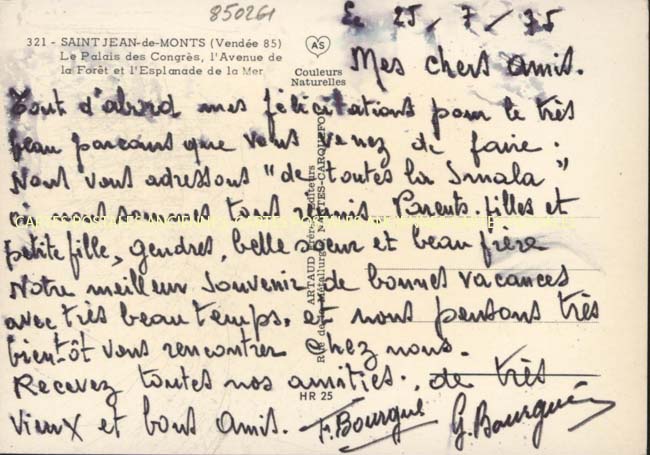 850261
Le 25/7/75
321 - SAINT JEAN-de-MONTS (Vendée 85)
Le Palais des Congrès, l'Avenue de
la Forêt et l'Esplanade de la Mer
AS
Couleurs
Naturelles
Mes chers amis.
Tout d'abord mes félicitations pour le très
beau parcours que vous venez de faire.
Nous vous adressons "de toutes la Smala"
nous sommes tous réunis Parents. filles et
petite fille, gendres, belle soeur et beau frère
Notre meilleur souvenir de bonnes vacances
avec très beau temps. et nous pensons très
bientôt vous rencontrer chez nous.
Recevez toutes nos amitiés. de très
vieux et bons amis. F. Bourgue G. Bourgué
HR 25